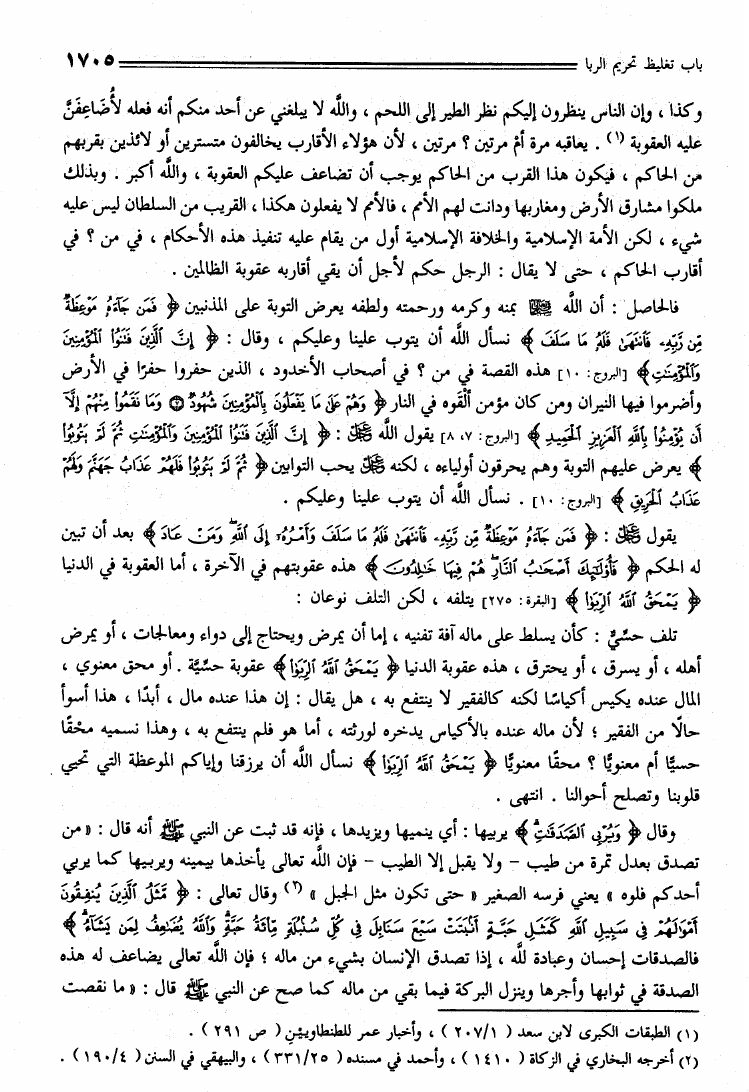 باب تغليظ تحريم الربا ١٧٠٥
وكذا ، وإن الناس ينظرون إليكم نظر الطير إلى اللحم ، واللَّه لا يبلغني عن أحد منكم أنه فعله لأُضَاعِفَنَّ
عليه العقوبة (١) . يعاقبه مرة أمْ مرتين ؟ مرتين ، لأن هؤلاء الأقارب يخالفون متسترين أو لائذين بقربهم
من الحاكم ، فيكون هذا القرب من الحاكم يوجب أن تضاعف عليكم العقوبة ، واللَّه أكبر . وبذلك
ملكوا مشارق الأرض ومغاربها ودانت لهم الأمم ، فالأمم لا يفعلون هكذا ، القريب من السلطان ليس عليه
شيء ، لكن الأمة الإسلامية والخلافة الإسلامية أول من يقام عليه تنفيذ هذه الأحكام ، في من ؟ في
أقارب الحاكم ، حتى لا يقال : الرجل حكم لأجل أن يقي أقاربه عقوبة الظالمين .
فالحاصل : أن اللَّه ﷻ بمنه وكرمه ورحمته ولطفه يعرض التوبة على المذنبين ﴿ فَمَن جَآءَهُۥ مَوْعِظَةٌ
مِّن رَّبِّهِۦ فَٱنتَهَىٰ فَلَهُۥ مَا سَلَفَ ﴾ نسأل اللَّه أن يتوب علينا وعليكم ، وقال : ﴿ إِنَّ ٱلَّذِينَ فَتَنُوا۟ ٱلْمُؤْمِنِينَ
وَٱلْمُؤْمِنَـٰتِ ﴾ [البروج: ١٠] هذه القصة في من ؟ في أصحاب الأخدود ، الذين حفروا حفرًا في الأرض
وأضرموا فيها النيران ومن كان مؤمن ألْقَوه في النار ﴿ وَهُمْ عَلَىٰ مَا يَفْعَلُونَ بِٱلْمُؤْمِنِينَ شُهُودٌ ۝ وَمَا نَقَمُوا۟ مِنْهُمْ إِلَّآ
أَن يُؤْمِنُوا۟ بِٱللَّهِ ٱلْعَزِيزِ ٱلْحَمِيدِ ﴾ [البروج: ٧، ٨] يقول اللَّه ﷻ : ﴿ إِنَّ ٱلَّذِينَ فَتَنُوا۟ ٱلْمُؤْمِنِينَ وَٱلْمُؤْمِنَـٰتِ ثُمَّ لَمْ يَتُوبُوا۟
﴾ يعرض عليهم التوبة وهم يحرقون أولياءه ، لكنه ﷻ يحب التوابين ﴿ ثُمَّ لَمْ يَتُوبُوا۟ فَلَهُمْ عَذَابُ جَهَنَّمَ وَلَهُمْ
عَذَابُ ٱلْحَرِيقِ ﴾ [البروج: ١٠] . نسأل اللَّه أن يتوب علينا وعليكم .
يقول ﷻ : ﴿ فَمَن جَآءَهُۥ مَوْعِظَةٌ مِّن رَّبِّهِۦ فَٱنتَهَىٰ فَلَهُۥ مَا سَلَفَ وَأَمْرُهُۥٓ إِلَى ٱللَّهِ ۖ وَمَنْ عَادَ ﴾ بعد أن تبين
له الحكم ﴿ فَأُو۟لَـٰٓئِكَ أَصْحَـٰبُ ٱلنَّارِ ۖ هُمْ فِيهَا خَـٰلِدُونَ ﴾ هذه عقوبتهم في الآخرة ، أما العقوبة في الدنيا
﴿ يَمْحَقُ ٱللَّهُ ٱلرِّبَوٰا۟ ﴾ [البقرة: ٢٧٥] يتلفه ، لكن التلف نوعان :
تلف حسيٌّ : كأن يسلط على ماله آفة تفنيه ، إما أن يمرض ويحتاج إلى دواء ومعالجات ، أو يمرض
أهله ، أو يسرق ، أو يحترق ، هذه عقوبة الدنيا ﴿ يَمْحَقُ ٱللَّهُ ٱلرِّبَوٰا۟ ﴾ عقوبة حسيَّة . أو محق معنوي ،
المال عنده يكيس أكياسًا لكنه كالفقير لا ينتفع به ، هل يقال : إن هذا عنده مال ، أبدًا ، هذا أسوأ
حالًا من الفقير ؛ لأن ماله عنده بالأكياس يدخره لورثته ، أما هو فلم ينتفع به ، وهذا نسميه محْقًا
حسيًّا أم معنويًّا ؟ محقا معنويًّا ﴿ يَمْحَقُ ٱللَّهُ ٱلرِّبَوٰا۟ ﴾ نسأل اللَّه أن يرزقنا وإياكم الموعظة التي تحيي
قلوبنا وتصلح أحوالنا . انتهى .
وقال ﴿ وَيُرْبِى ٱلصَّدَقَـٰتِ ﴾ يربيها : أي ينميها ويزيدها ، فإنه قد ثبت عن النبي ﷺ أنه قال : « من
تصدق بعدل تمرة من طيب – ولا يقبل إلا الطيب – فإن اللَّه تعالى يأخذها بيمينه ويربيها كما يربي
أحدكم فلوه » يعني فرسه الصغير « حتى تكون مثل الجبل » (٢) وقال تعالى : ﴿ مَّثَلُ ٱلَّذِينَ يُنفِقُونَ
أَمْوَٰلَهُمْ فِى سَبِيلِ ٱللَّهِ كَمَثَلِ حَبَّةٍ أَنۢبَتَتْ سَبْعَ سَنَابِلَ فِى كُلِّ سُنۢبُلَةٍ مِّا۟ئَةُ حَبَّةٍ ۗ وَٱللَّهُ يُضَـٰعِفُ لِمَن يَشَآءُ ﴾
فالصدقات إحسان وعبادة للَّه ، إذا تصدق الإنسان بشيء من ماله ؛ فإن اللَّه تعالى يضاعف له هذه
الصدقة في ثوابها وأجرها وينزل البركة فيما بقي من ماله كما صح عن النبي ﷺ قال : « ما نقصت
(١) الطبقات الكبرى لابن سعد ( ٢٠٧/١ ) ، وأخبار عمر للطنطاويين ( ص ٢٩١ ) .
(٢) أخرجه البخاري في الزكاة ( ١٤١٠ ) ، وأحمد في مسنده ( ٣٣١/٢٥ ) ، والبيهقي في السنن ( ١٩٠/٤ ) .